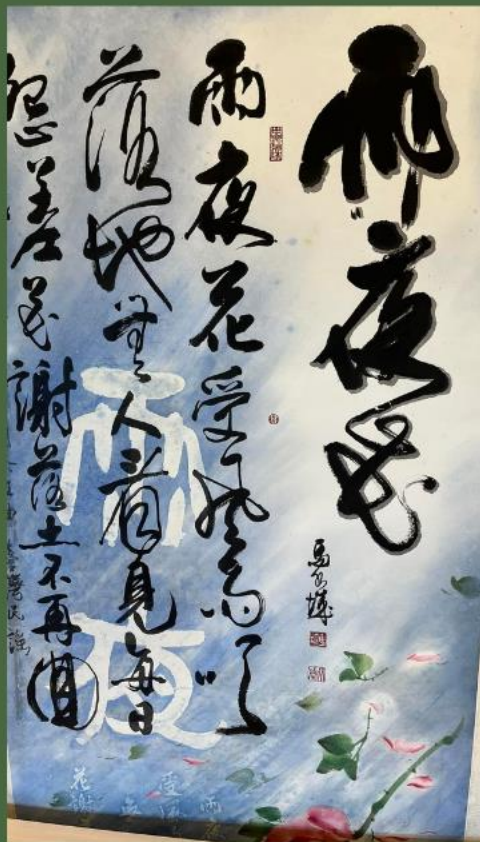 雨夜花
雨夜花受風雨吹
落地無人看見每日
怨嗟花謝落土不再回
雨夜